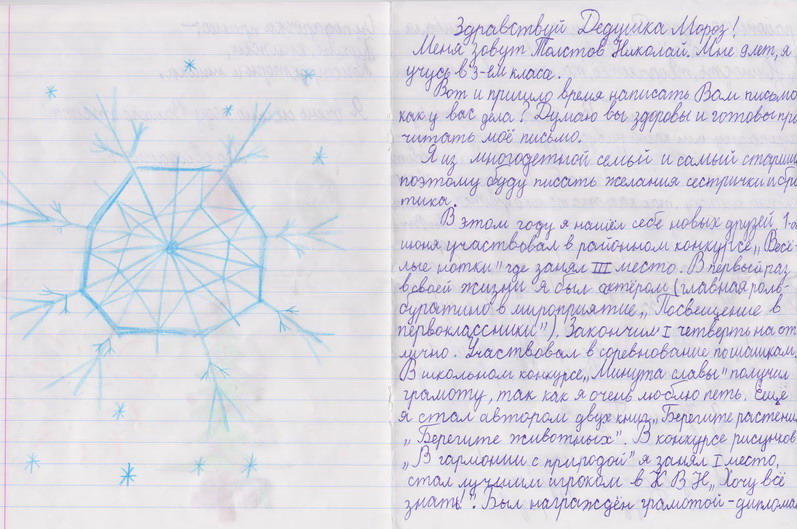 Здравствуй Дедушка Мороз!
Меня зовут Толстов Николай. Мне 9 лет, я
учусь в 3-ем класа.
Вот и пришло время написать Вам письмо
как у вас дела? Думаю вы здоровы и готовы про
читать моё письмо.
Я из многодетной семьй и самый старший
поэтому буду писать желания сестрички и бра
тика.
В этом году я нашёл себе новых друзей, 1-а
июня участвовал в районном конкурсе „Весё-
лые нотки" где занял III место. В первый раз
в своей жизни я был актёром (главная роль-
буратино в мироприятие „Посвещение в
первоклассники"). Закончил I четверть на от
лично. Участвовал в соревнование по шашкам.
В школьном конкурсе „Минута славы" получил
грамоту, так как я очень люблю петь. Ещё
я стал автором двух книг „Берегите растения
„Берегите животных". В конкурсе рисунков
„В гармонии с природой" я занял I место,
стал лучшим игроком в К В Н „Хочу всё
знать!". Был награждён грамотой-диплома